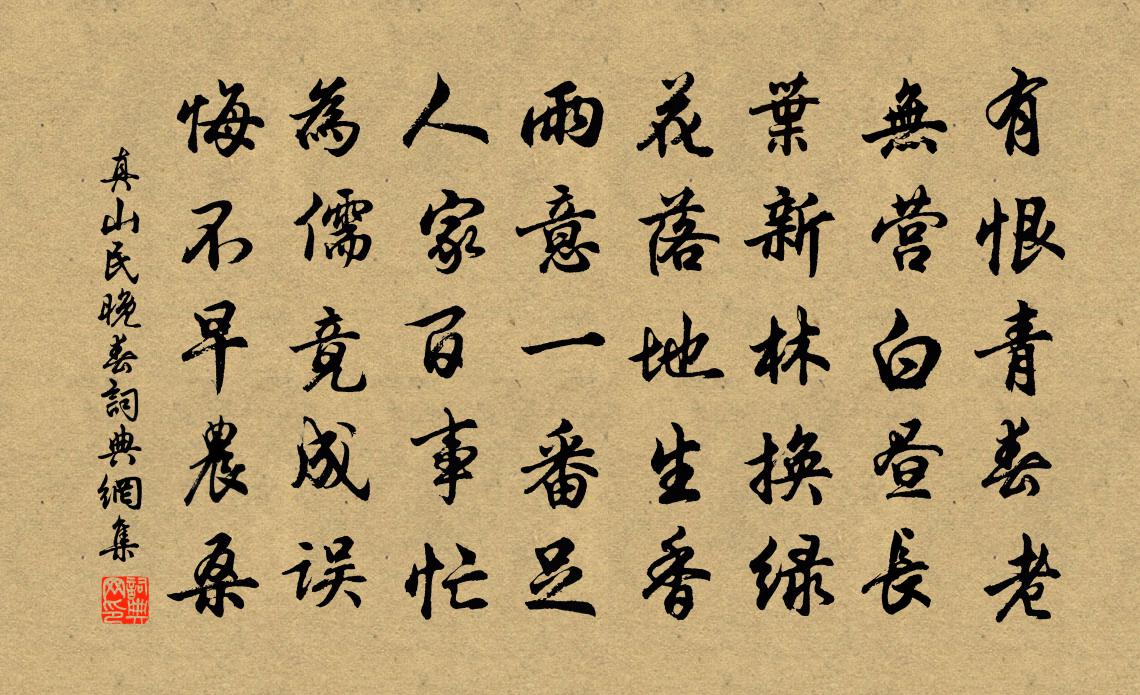 有恨青春老
無营白昼長
葉新林換绿
花落地生香
雨意一番足
人家百事忙
為儒竟成误
悔不早農桑
真山民晚春詞典網集
詞典网印